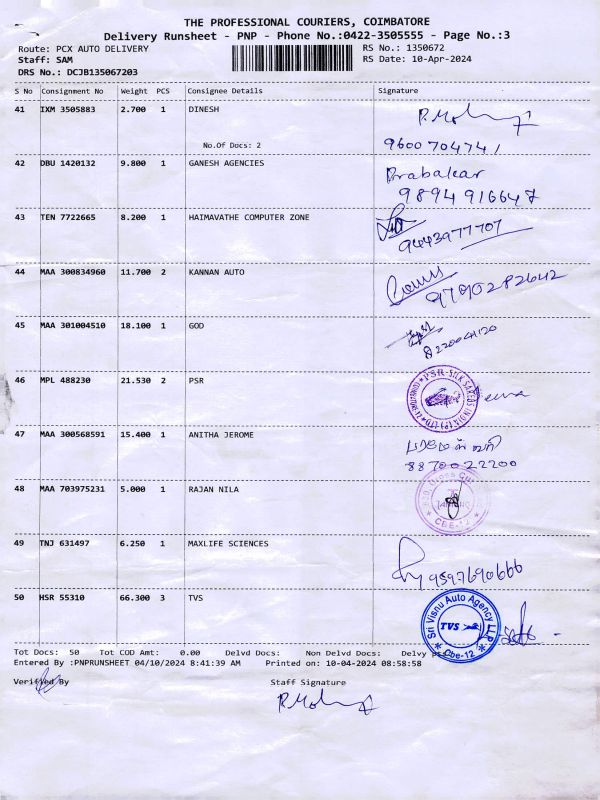 THE PROFESSIONAL COURIERS, COIMBATORE
Delivery Runsheet - PNP - Phone No.:0422-3505555 - Page No.:3
Route: PCX AUTO DELIVERY RS No.: 1350672
Staff: SAM RS Date: 10-Apr-2024
DRS No.: DCJB135067203
S No Consignment No Weight PCS Consignee Details Signature
41 IXM 3505883 2.700 1 DINESH
No.Of Docs: 2 9600704741
42 DBU 1420132 9.800 1 GANESH AGENCIES Prabakar
9894916647
43 TEN 7722665 8.200 1 HAIMAVATHE COMPUTER ZONE
9443977707
44 MAA 300834960 11.700 2 KANNAN AUTO
9790282642
45 MAA 301004510 18.100 1 GOD
8220041120
46 MPL 488230 21.530 2 PSR
47 MAA 300568591 15.400 1 ANITHA JEROME
8870022200
48 MAA 703975231 5.000 1 RAJAN NILA
CBE-12
49 TNJ 631497 6.250 1 MAXLIFE SCIENCES
9597690666
50 HSR 55310 66.300 3 TVS
Sri Visnu Auto Agency LLP
TVS
Cbe-12
Tot Docs: 50 Tot COD Amt: 0.00 Delvd Docs: Non Delvd Docs: Delvy
Entered By :PNPRUNSHEET 04/10/2024 8:41:39 AM Printed on: 10-04-2024 08:58:58
Verified By Staff Signature